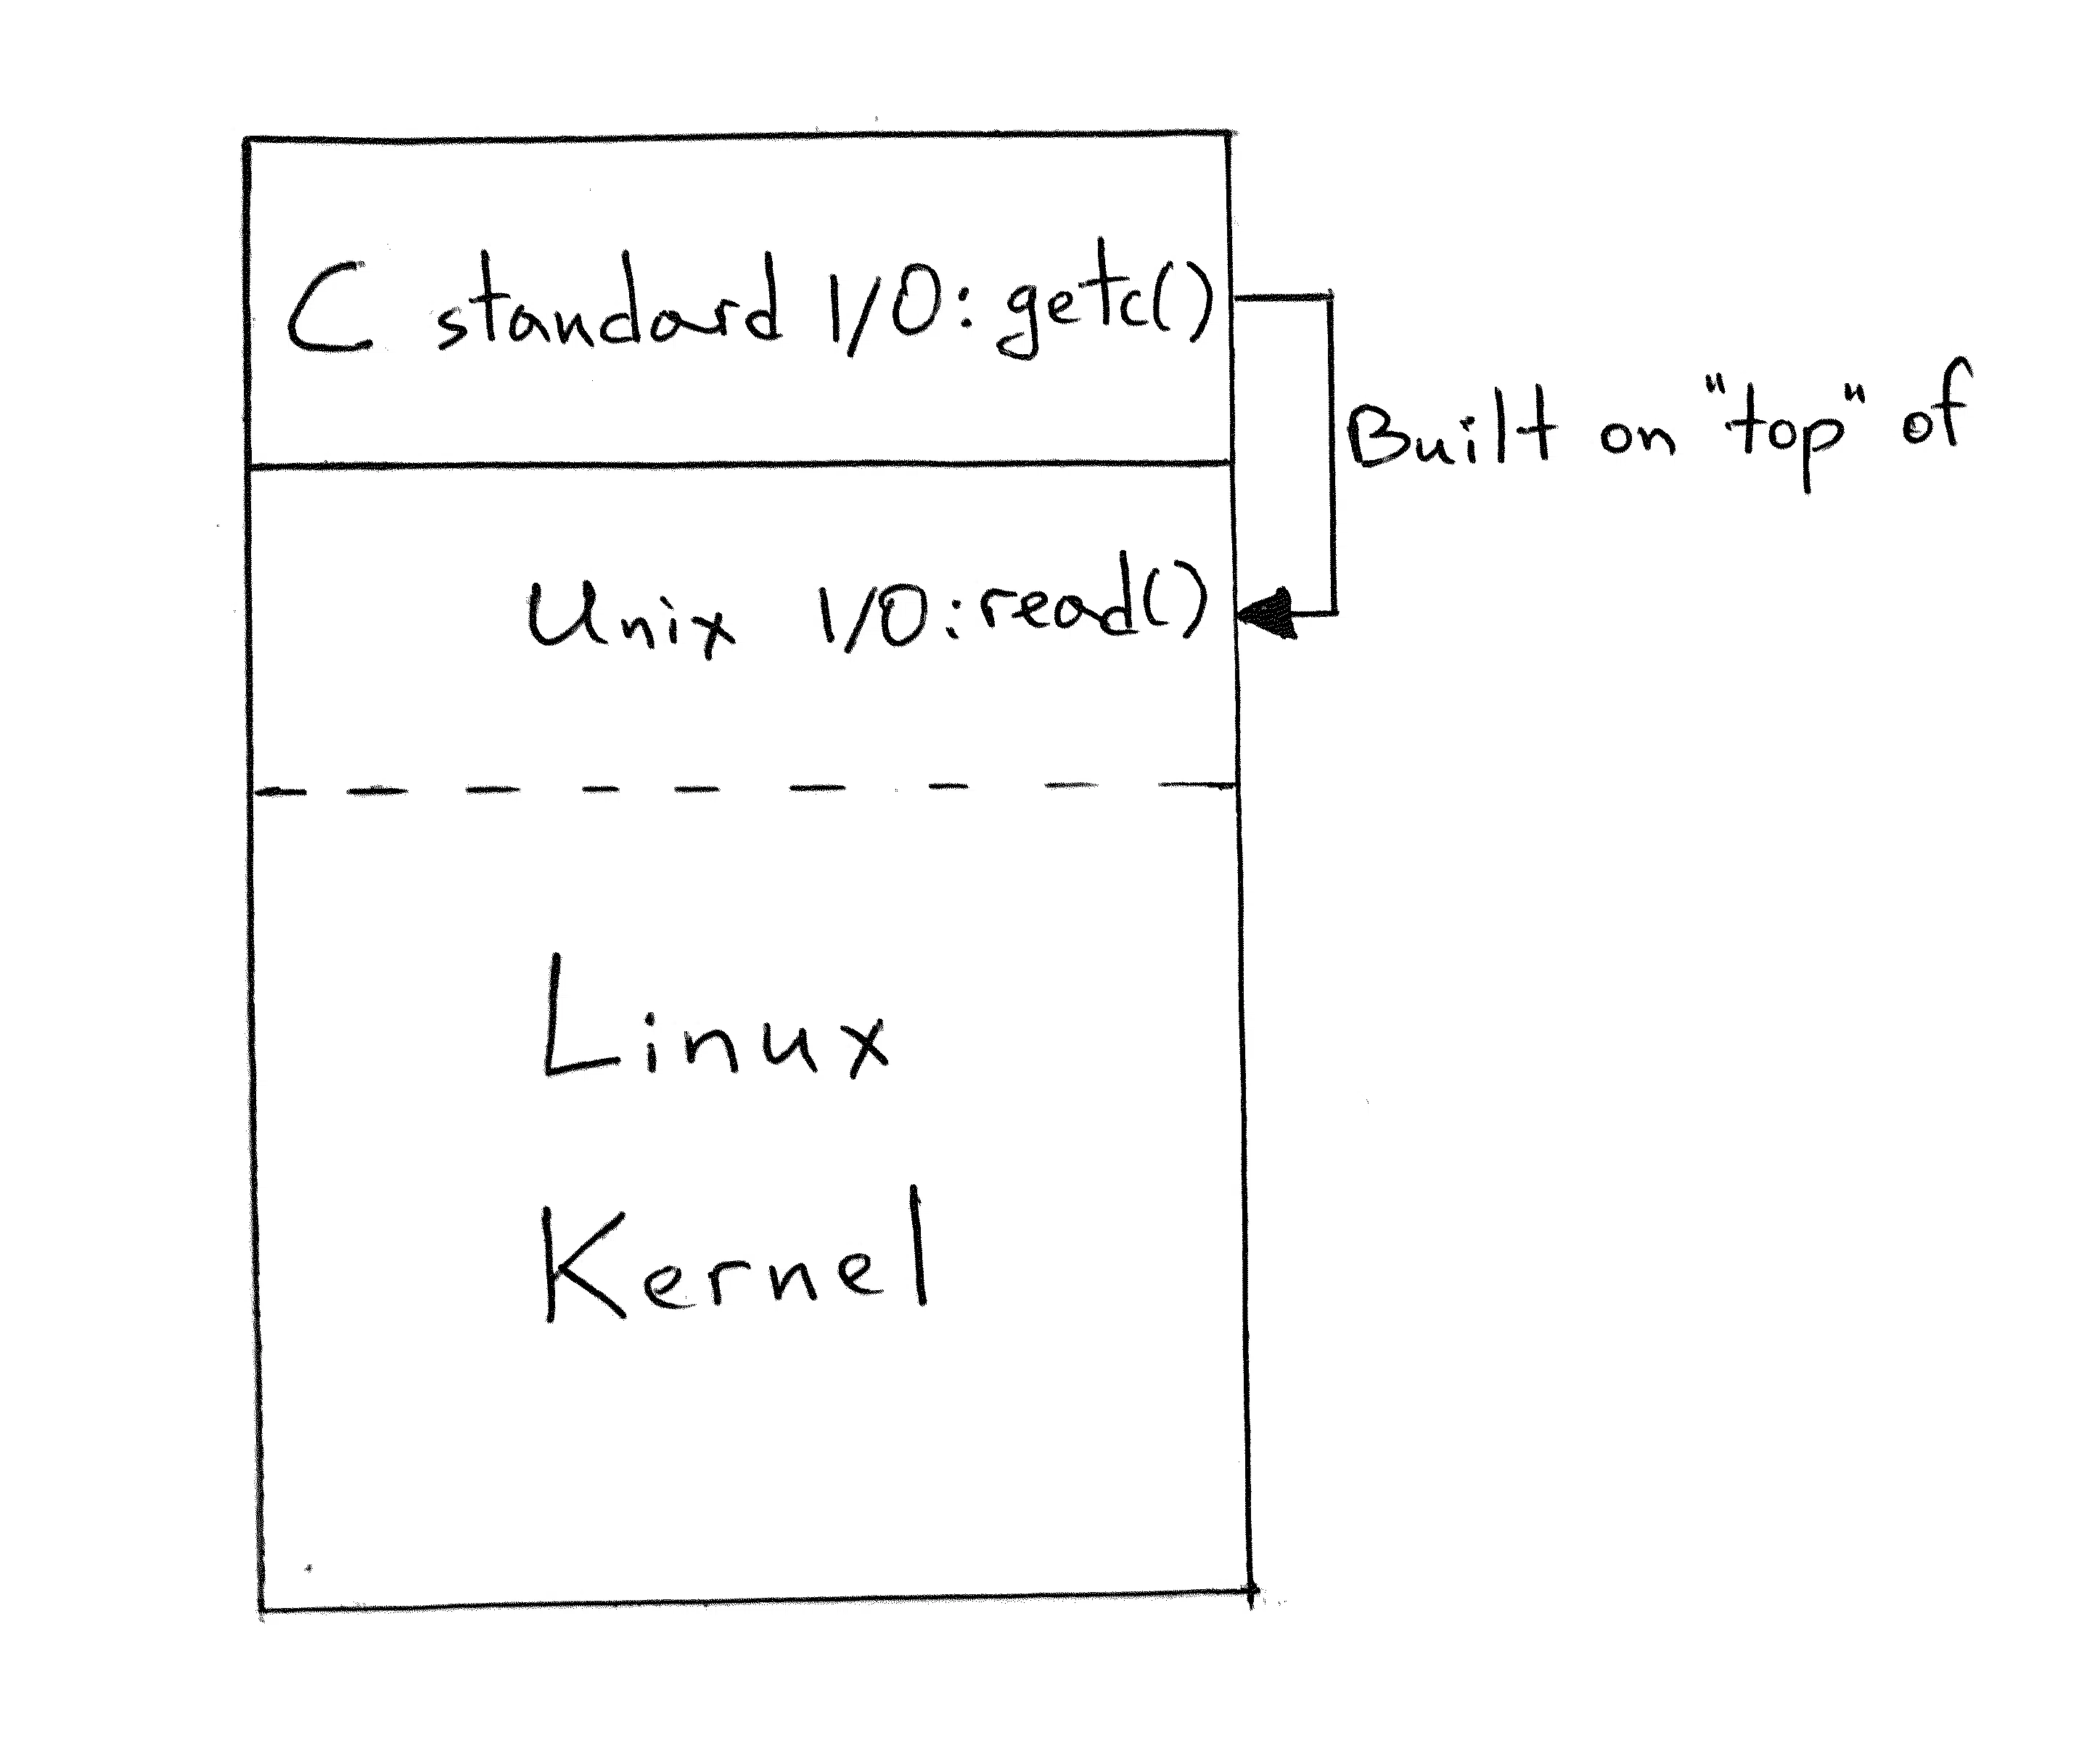 C standard I/O: getc()
Built on "top" of
Unix I/O: read()
Linux
Kernel